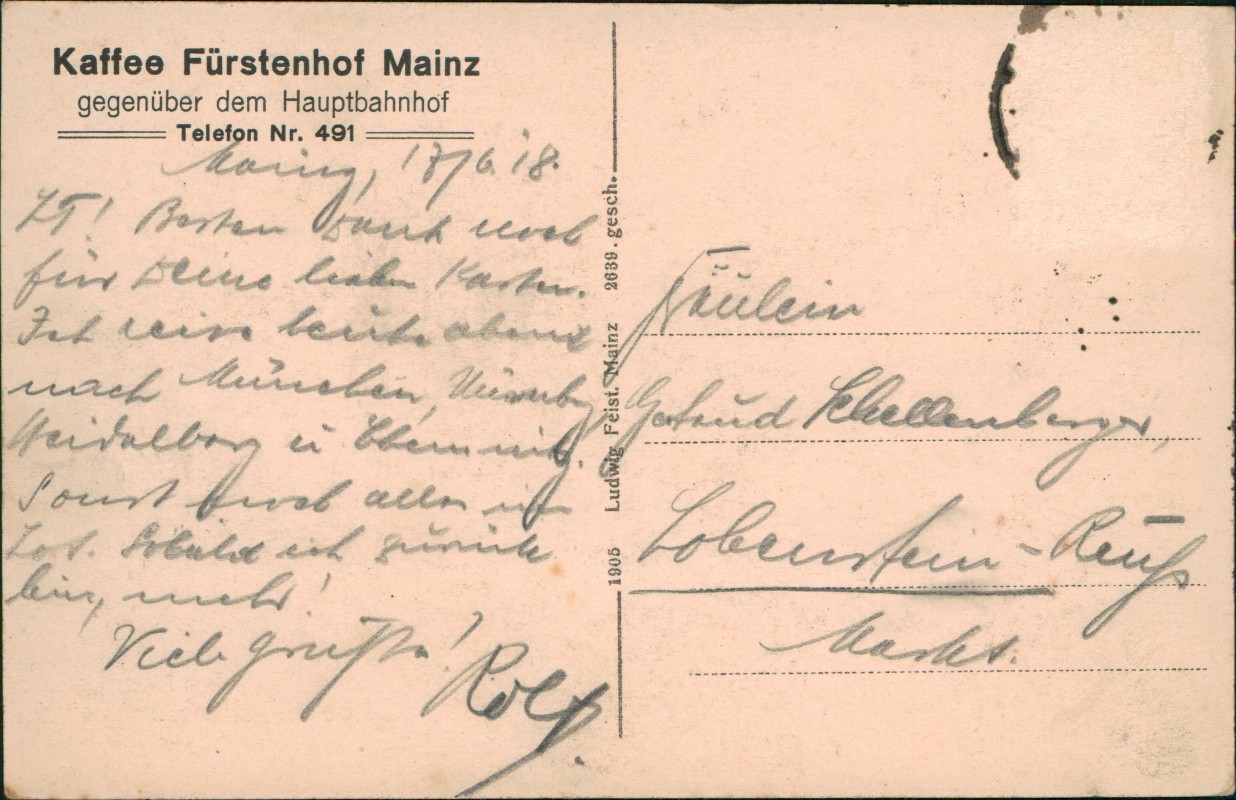 Kaffee Fürstenhof Mainz
gegenüber dem Hauptbahnhof
Telefon Nr. 491
Mainz, 17/6.18.
Besten Dank noch
für Deine lieben Karten.
reise heute abend
nach München, Nürnberg
Heidelberg u Chemnitz.
Sonst noch alles
Sobald ich zurück
bin, mehr!
Viele Grüße!
Rolf.
1905 Ludwig Feist. Mainz 2639. gesch.
Fräulein
Gertrud Schellenberger,
Lobenstein-Reuß
Markt.